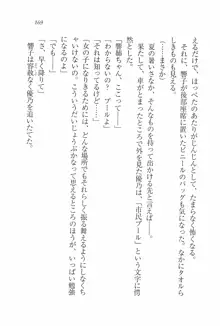 168
えるだけで、ほっぺたのあたりがじんじんして、たまらなく怖くなる。
それに、響子が後部座席に置いていたビニールのバッグも気になった。なかにタオルら
しきものも見える。
（……まさか）
夏の暑いさなか、そんなものを持って出かける先と言えば……
果たして、車がとまったとき、窓の外を見た優乃は、「市民プール」という文字に愕
然とした。
「響姉ちゃん、ここって――」
「なによ？　プールよ」
「それは見るけど……ここって……」
「女の子になるためには、どんな場所でもそれらしく振る舞えるようにしなくち
ゃいけないの。こういうだいじょうぶかなって思えるところのほうが、いっぱい勉強
できるでしょ」
「さ、早く降りて」
響子は容赦なく優乃を追いたてた。